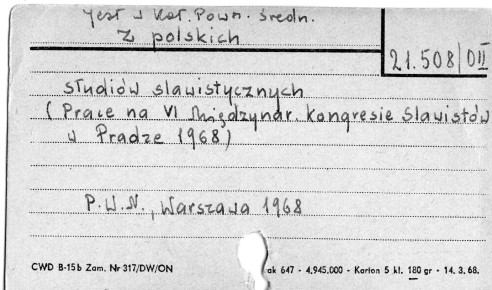 jest w Kat. Pown. średn.
Z polskich
21.508/OIII
studiów slawistycznych
(Prace na VI Międzynar. kongresie Slawistów
w Pradze 1968)
P.W.N., Warszawa 1968
CWD B-15b Zam. Nr 317/DW/ON
ak 647 - 4,945.000 - Karton 5 kl. 180 gr - 14. 3. 68.